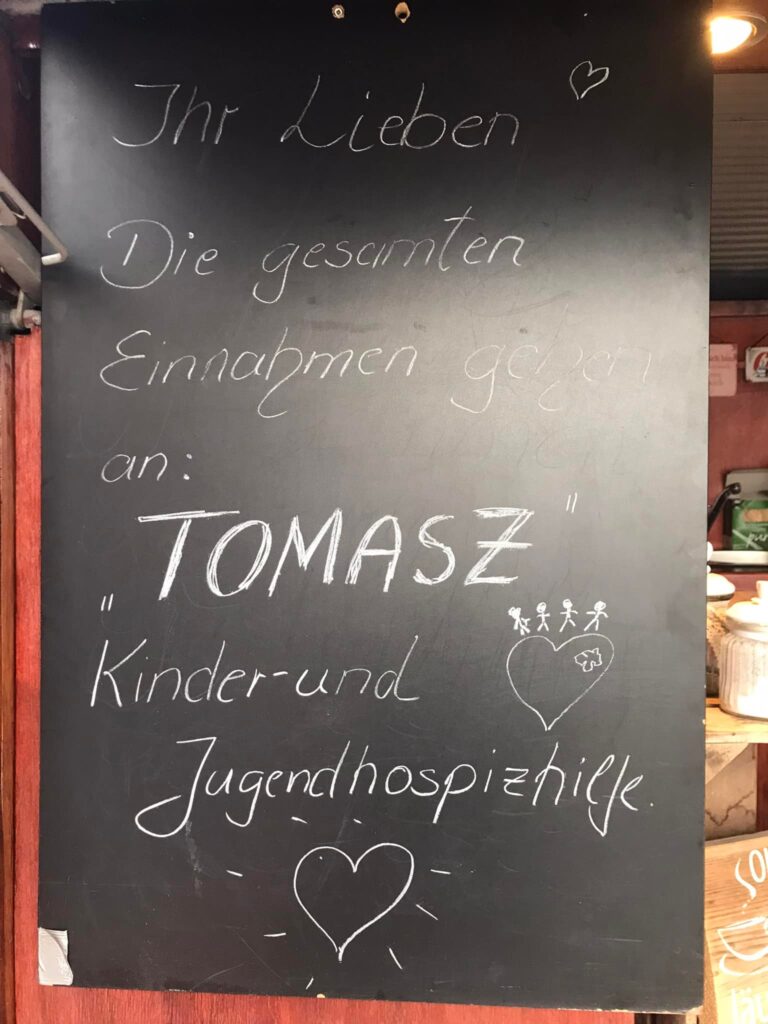 Ihr Lieben
Die gesamten
Einnahmen gehen
an:
"TOMASZ"
Kinder-und
Jugendhospizhilfe.